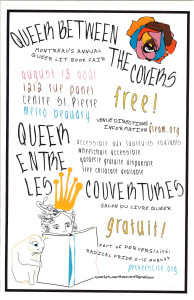 QUEER BETWEEN
THE COVERS
MONTREAL'S ANNUAL
QUEER LIT BOOK FAIR
august 13 août
1212 rue panet
centre st. pierre
métro beaudry
free!
VENUE DIRECTIONS &
INFORMATION
QUEER
ENTRE
LES
COUVERTURES
accessible aux fauteuils roulants
wheelchair accessible
garderie gratuite disponible
free childcare available
SALON DU LIVRE QUEER
gratuit!
PART OF PERVERS/CITÉ:
RADICAL PRIDE 5-15 AUGUST
perverscite.org